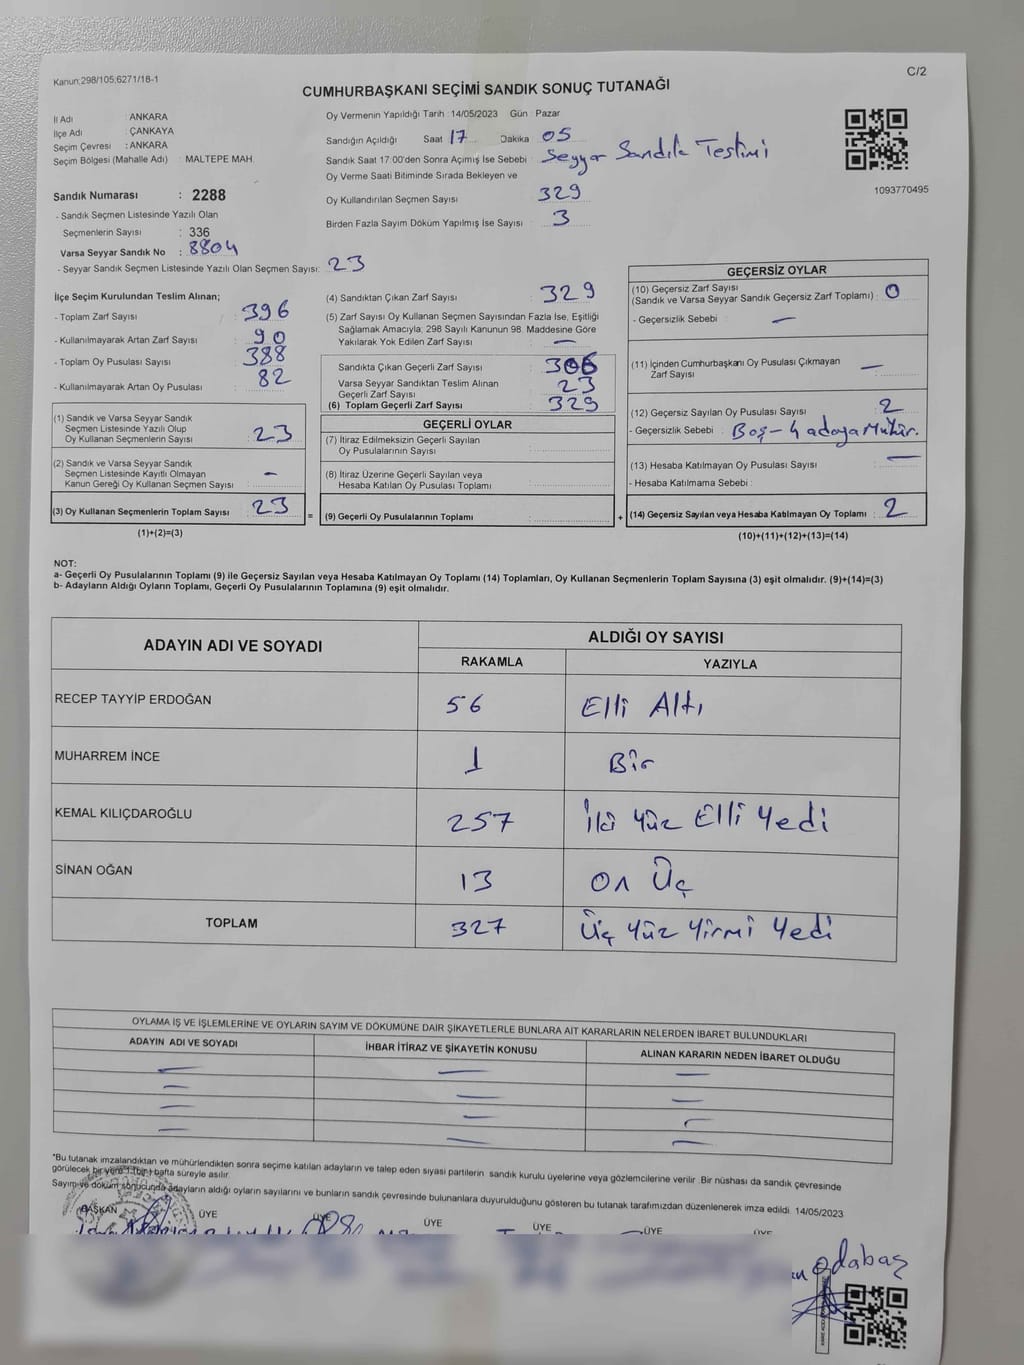 Kanun:298/105;6271/18-1
C/2
CUMHURBAŞKANI SEÇİMİ SANDIK SONUÇ TUTANAĞI
İl Adı : ANKARA
İlçe Adı : ÇANKAYA
Seçim Çevresi : ANKARA
Seçim Bölgesi (Mahalle Adı) : MALTEPE MAH.
Sandık Numarası : 2288
- Sandık Seçmen Listesinde Yazılı Olan
Seçmenlerin Sayısı : 336
Varsa Seyyar Sandık No : 8804
- Seyyar Sandık Seçmen Listesinde Yazılı Olan Seçmen Sayısı: 23
Oy Vermenin Yapıldığı Tarih : 14/05/2023 Gün : Pazar
Sandığın Açıldığı Saat 17 Dakika 05
Sandık Saat 17:00'den Sonra Açımış İse Sebebi : Seyyar Sandık Teslimi
Oy Verme Saati Bitiminde Sırada Bekleyen ve
Oy Kullandırılan Seçmen Sayısı : 329
Birden Fazla Sayım Döküm Yapılmış İse Sayısı : 3
1093770495
İlçe Seçim Kurulundan Teslim Alınan;
- Toplam Zarf Sayısı : 396
- Kullanılmayarak Artan Zarf Sayısı : 90
- Toplam Oy Pusulası Sayısı : 388
- Kullanılmayarak Artan Oy Pusulası : 82
(1) Sandık ve Varsa Seyyar Sandık
Seçmen Listesinde Yazılı Olup
Oy Kullanan Seçmenlerin Sayısı : 23
(2) Sandık ve Varsa Seyyar Sandık
Seçmen Listesinde Kayıtlı Olmayan
Kanun Gereği Oy Kullanan Seçmen Sayısı : -
(3) Oy Kullanan Seçmenlerin Toplam Sayısı : 23
(1)+(2)=(3)
(4) Sandıktan Çıkan Zarf Sayısı : 329
(5) Zarf Sayısı Oy Kullanan Seçmen Sayısından Fazla İse, Eşitliği
Sağlamak Amacıyla; 298 Sayılı Kanunun 98. Maddesine Göre
Yakılarak Yok Edilen Zarf Sayısı : —
Sandıkta Çıkan Geçerli Zarf Sayısı : 306
Varsa Seyyar Sandıktan Teslim Alınan
Geçerli Zarf Sayısı : 23
(6) Toplam Geçerli Zarf Sayısı : 329
GEÇERLİ OYLAR
(7) İtiraz Edilmeksizin Geçerli Sayılan
Oy Pusulalarının Sayısı :
(8) İtiraz Üzerine Geçerli Sayılan veya
Hesaba Katılan Oy Pusulası Toplamı :
= (9) Geçerli Oy Pusulalarının Toplamı :
GEÇERSİZ OYLAR
(10) Geçersiz Zarf Sayısı
(Sandık ve Varsa Seyyar Sandık Geçersiz Zarf Toplamı) : 0
- Geçersizlik Sebebi : —
(11) İçinden Cumhurbaşkanı Oy Pusulası Çıkmayan
Zarf Sayısı : —
(12) Geçersiz Sayılan Oy Pusulası Sayısı : 2
- Geçersizlik Sebebi : Boş - 4 adaya Mühür.
(13) Hesaba Katılmayan Oy Pusulası Sayısı : —
- Hesaba Katılmama Sebebi :
+ (14) Geçersiz Sayılan veya Hesaba Katılmayan Oy Toplamı : 2
(10)+(11)+(12)+(13)=(14)
NOT:
a- Geçerli Oy Pusulalarının Toplamı (9) ile Geçersiz Sayılan veya Hesaba Katılmayan Oy Toplamı (14) Toplamları, Oy Kullanan Seçmenlerin Toplam Sayısına (3) eşit olmalıdır. (9)+(14)=(3)
b- Adayların Aldığı Oyların Toplamı, Geçerli Oy Pusulalarının Toplamına (9) eşit olmalıdır.
ADAYIN ADI VE SOYADI
ALDIĞI OY SAYISI
RAKAMLA YAZIYLA
RECEP TAYYİP ERDOĞAN 56 Elli Altı
MUHARREM İNCE 1 Bir
KEMAL KILIÇDAROĞLU 257 İki Yüz Elli Yedi
SİNAN OĞAN 13 On Üç
TOPLAM 327 Üç Yüz Yirmi Yedi
OYLAMA İŞ VE İŞLEMLERİNE VE OYLARIN SAYIM VE DÖKÜMÜNE DAİR ŞİKAYETLERLE BUNLARA AİT KARARLARIN NELERDEN İBARET BULUNDUKLARI
ADAYIN ADI VE SOYADI İHBAR İTİRAZ VE ŞİKAYETİN KONUSU ALINAN KARARIN NEDEN İBARET OLDUĞU
— — —
— — —
— — —
— — —
*Bu tutanak imzalandıktan ve mühürlendikten sonra seçime katılan adayların ve talep eden siyasi partilerin sandık kurulu üyelerine veya gözlemcilerine verilir. Bir nüshası da sandık çevresinde
görülecek bir yere 1 (bir) hafta süreyle asılır.
Sayım ve döküm sonucunda adayların aldığı oyların sayılarını ve bunların sandık çevresinde bulunanlara duyurulduğunu gösteren bu tutanak tarafımızdan düzenlenerek imza edildi. 14/05/2023
BAŞKAN ÜYE ÜYE ÜYE ÜYE ÜYE ÜYE
Odabaş